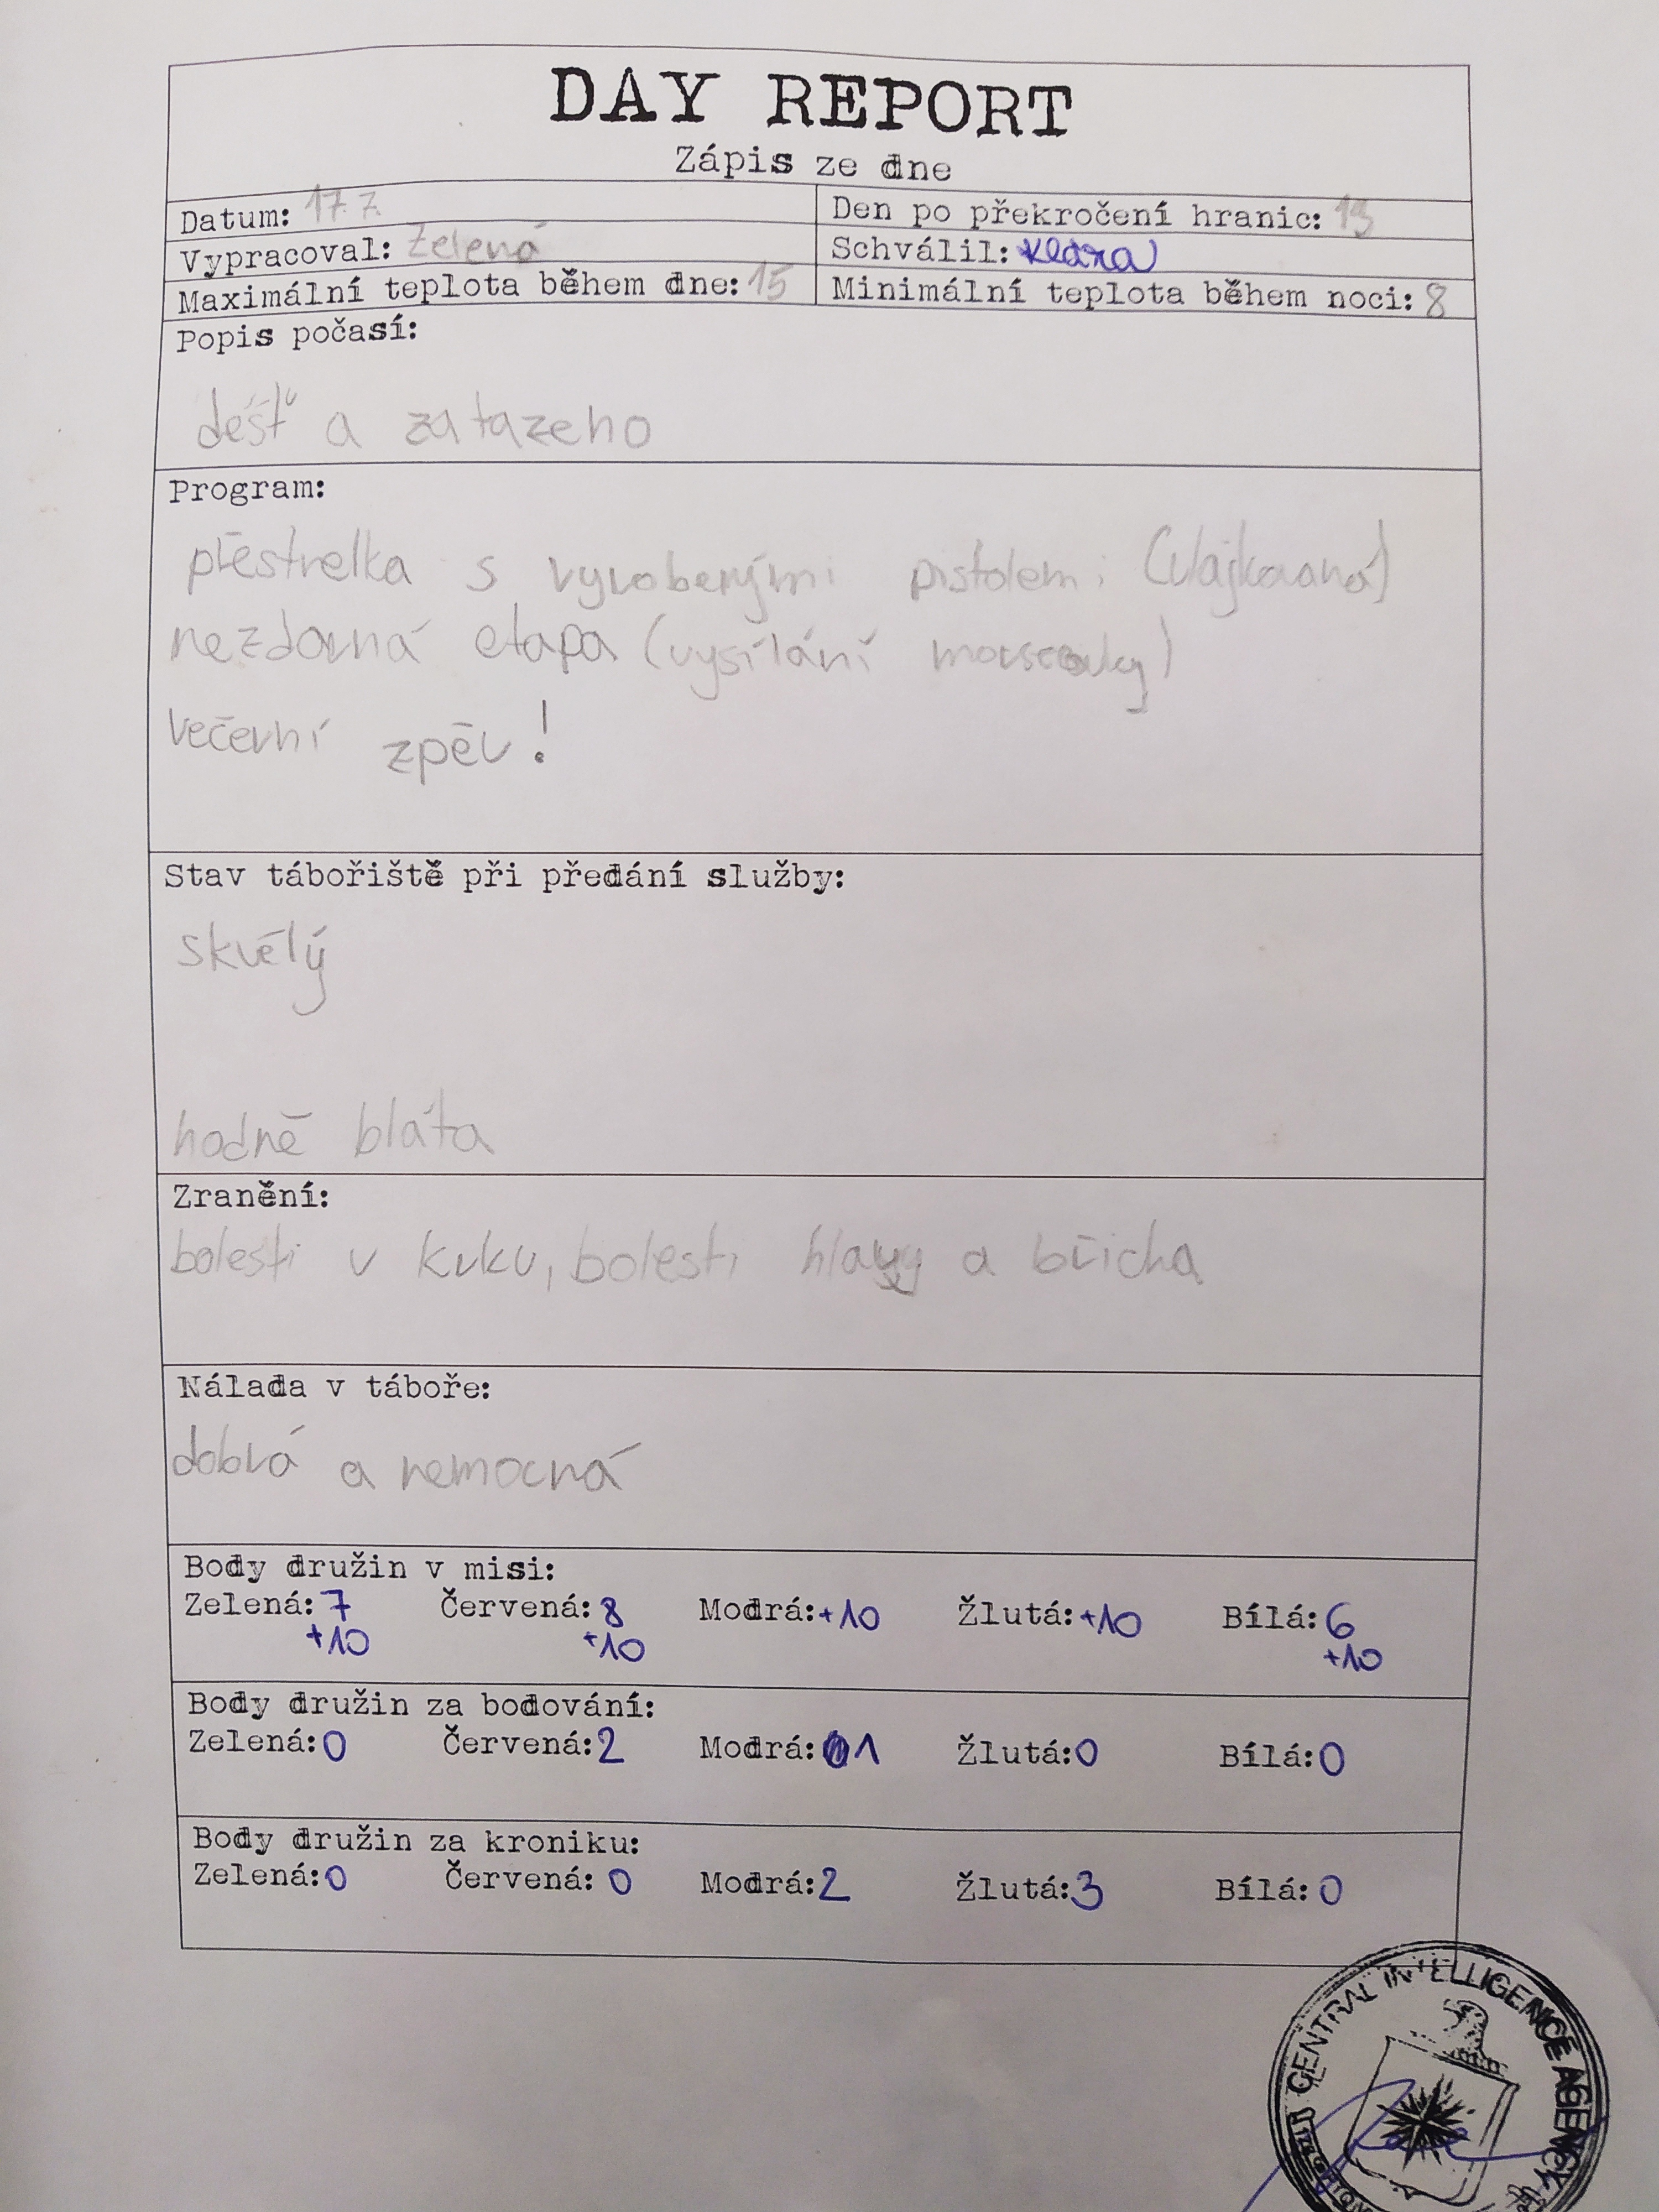 DAY REPORT
Zápis ze dne
Datum: 17.7. Den po překročení hranic: 13
Vypracoval: Zelená Schválil: Klára
Maximální teplota během dne: 15 Minimální teplota během noci: 8
Popis počasí:
déšť a zatazeno
Program:
přestrelka s vyrobenými pistolemi (vlajkovaná)
nezdarná etapa (vysílání morseovky)
večerní zpěv!
Stav tábořiště při předání služby:
skvělý
hodně bláta
Zranění:
bolesti v krku, bolesti hlavy a břicha
Nálada v táboře:
dobrá a nemocná
Body družin v misi:
Zelená: 7 Červená: 8 Modrá: +10 Žlutá: +10 Bílá: 6
+10 +10 +10
Body družin za bodování:
Zelená: 0 Červená: 2 Modrá: 1 Žlutá: 0 Bílá: 0
Body družin za kroniku:
Zelená: 0 Červená: 0 Modrá: 2 Žlutá: 3 Bílá: 0
CENTRAL INTELLIGENCE AGENCY